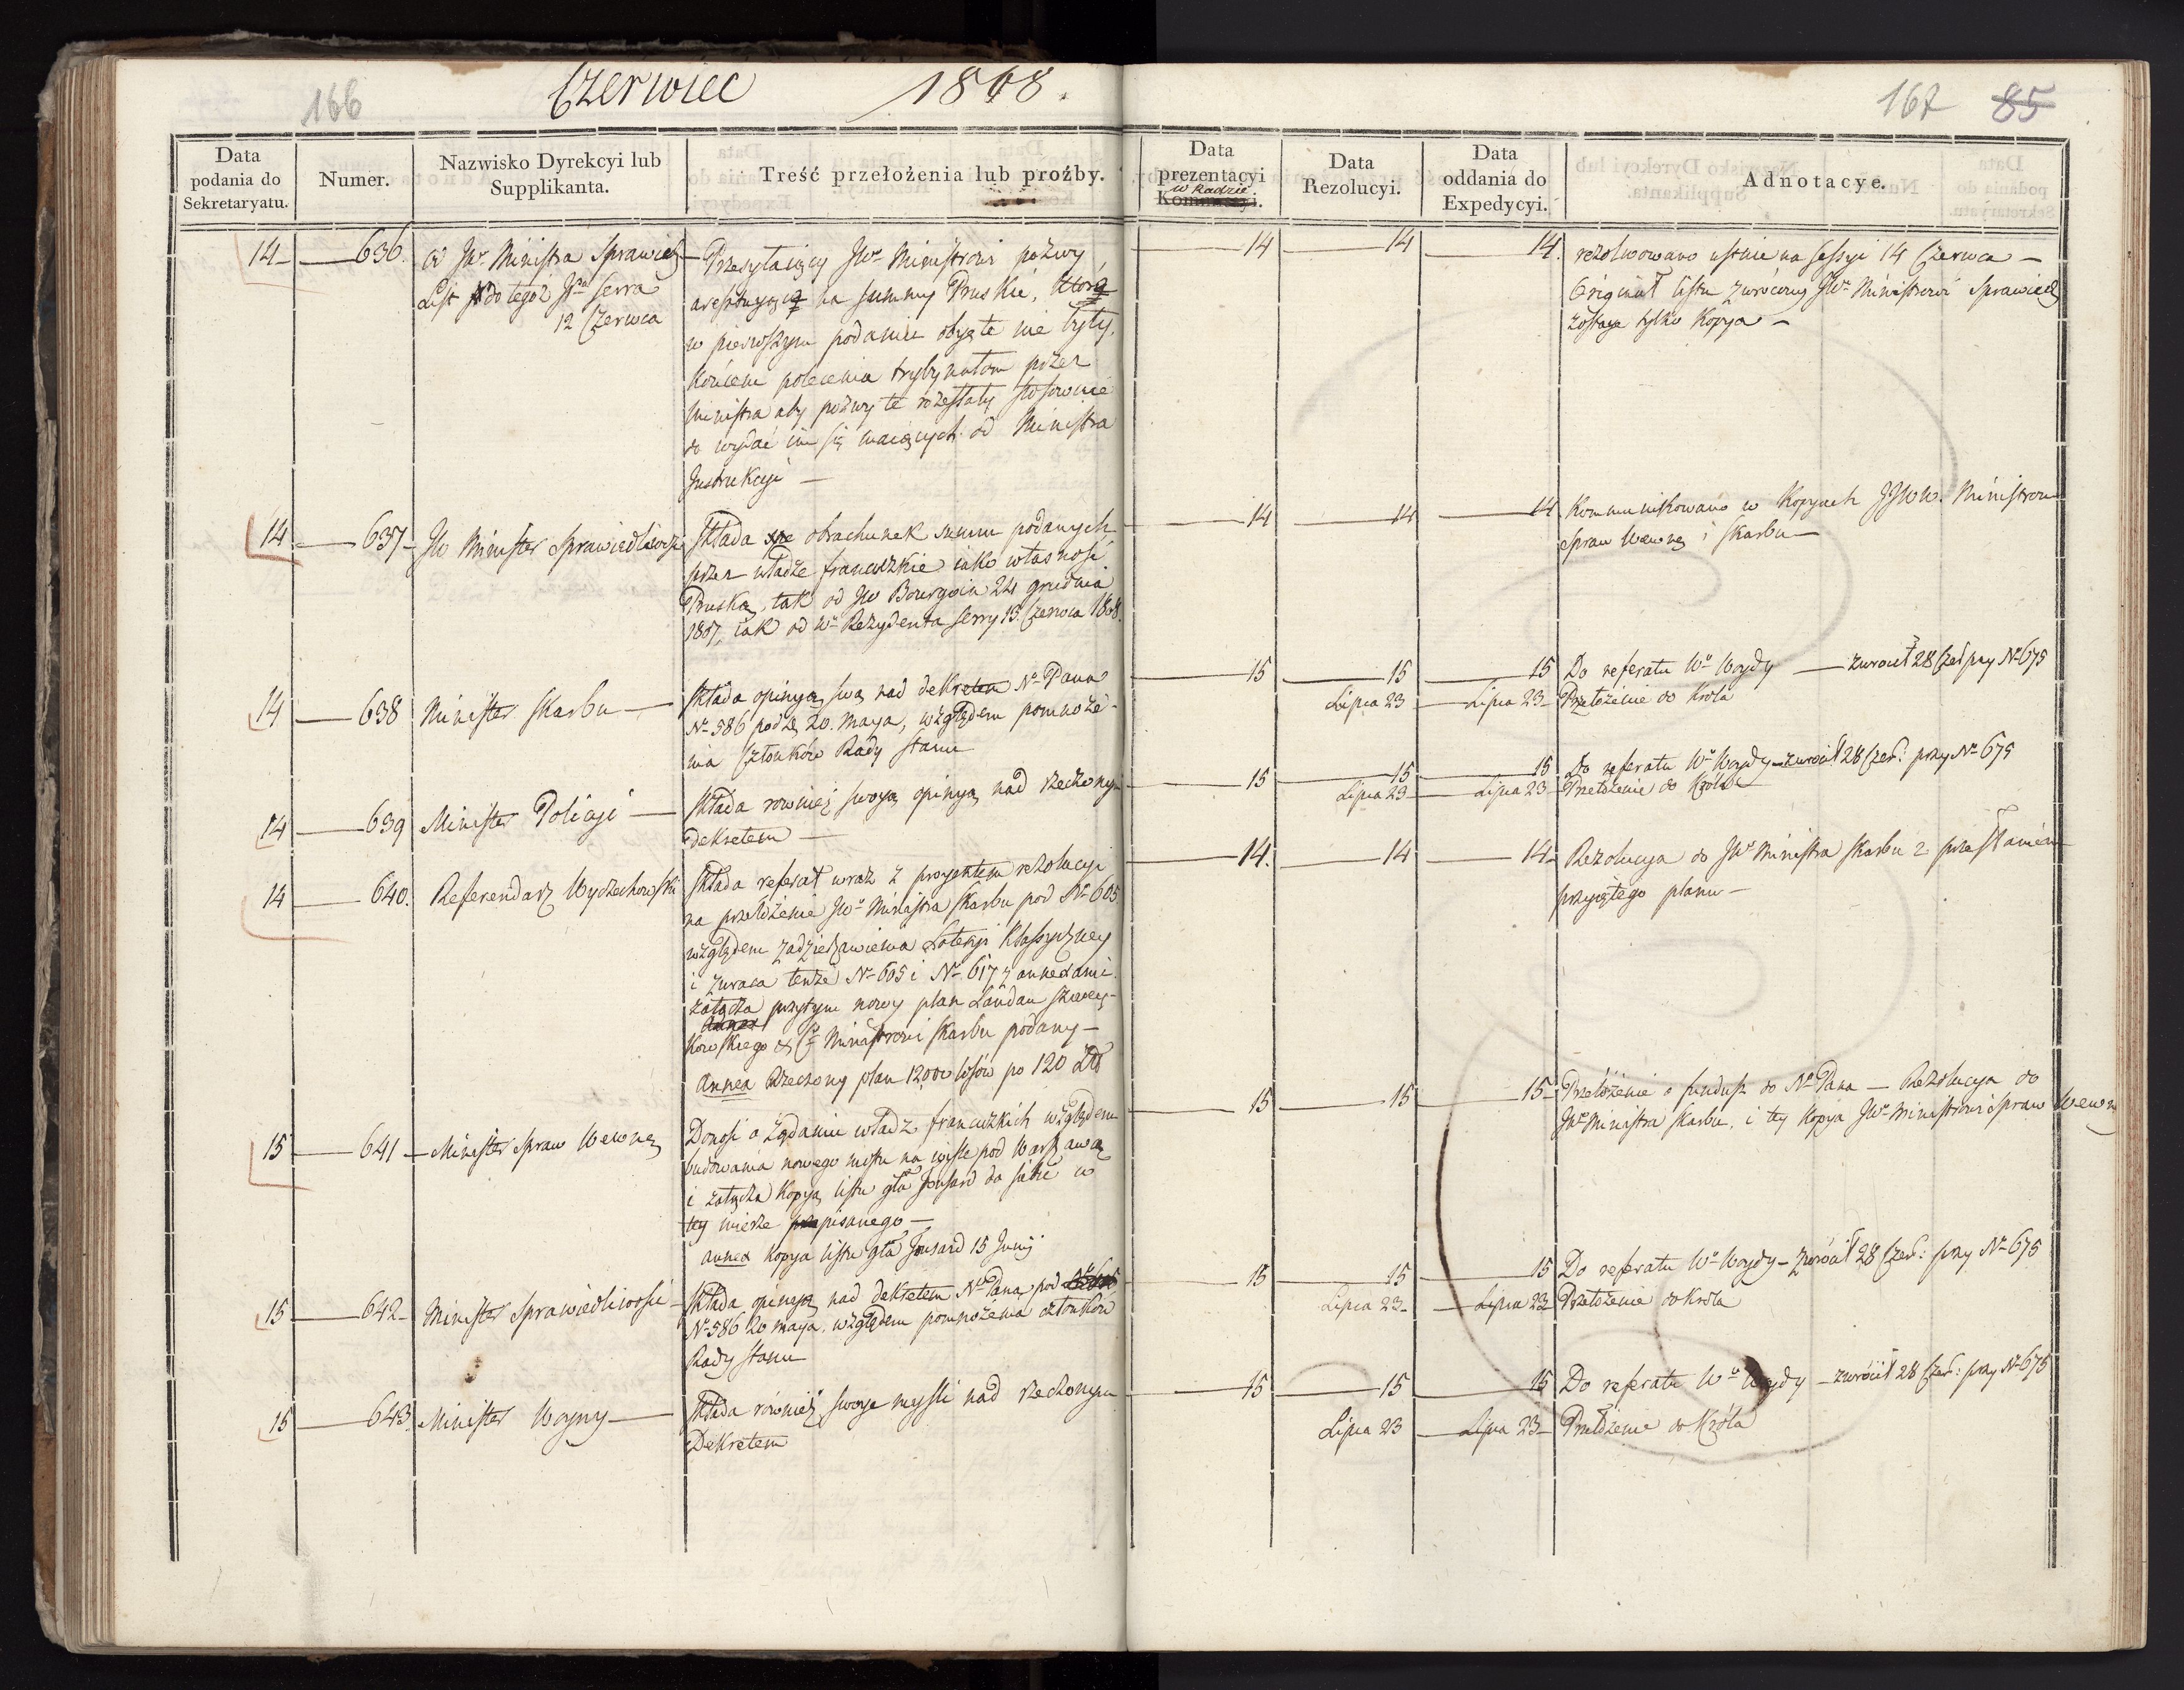 166
Czerwiec 1808.
167 85
Data podania do Sekretaryatu.
Numer.
Nazwisko Dyrekcyi lub Supplikanta.
Treść przełożenia lub proźby.
Data prezentacyi w Radzie Kommissyi.
Data Rezolucyi.
Data oddania do Expedycyi.
Adnotacye.
14 — 636.
od JWo Ministra Sprawiedl
List do tegoż Pna Serra
12 Czerwca
Przesyłaiący JWo Ministrowi pozwy
aresztuiące na summy Pruskie, które
w pierwszym podaniu obięte nie były,
końcem polecenia trybynałom przez
Ministra aby pozwy te rozesłały stosownie
do wydać im się maiących od Ministra
Instrukcyi —
14 — 14 — 14.
rezolwowano ustnie na sessyi 14 Czerwca —
Oryginał listu zwrócony JWo Ministrowi Sprawiedl
zostaie tylko Kopya —
14 — 637 —
JW Minister Sprawiedliwości
składa obrachunek summ podanych
przez władze francuzkie iako własność
Pruską, tak od JW Bourgoin 24 grudnia
1807, iak od Wo Rezydenta Serry 13. Czerwca 1808.
14 — 14 — 14
Kommunikowano w Kopyach JJWW. Ministrom
Spraw Wewnę i Skarbu —
14 — 638
Minister Skarbu —
składa opinyą swą nad dekretem No Pana
No 586 pod d. 20. Maya, względem pomnoże-
nia Członków Rady Stanu
15 — 15 — 15
Do referatu Wo Woydy — zwrócił 28 Czer przy No 675
Lipca 23 — Lipca 23 — Przełożenie do Króla
14 — 639
Minister Policyi —
składa rownież swoyą opinyą nad rzeczonym
dekretem —
15 — 15 — 15
Do referatu Wo Woydy — zwrócił 28 Czer: przy No 675
Lipca 23 — Lipca 23 — Przełożenie do Króla
14 — 640.
Referendarz Wyczechowski
składa referat wraz z proyektem rezolucyi
na przełożenie JWo Ministra Skarbu pod No 605
względem zadzierżawienia Loteryi Klassyczney
i zwraca tenże No 605 i No 617 z annexami.
załącza przytym nowy plan Landau
kowskiego Ministrowi Skarbu podany —
Annex Rzeczony plan 12,000 losów po 120 Zło
14. — 14 — 14 —
Rezolucya do JWo Ministra Skarbu z przesłaniem
przyiętego planu —
15 — 641 —
Minister Spraw Wewnę
Donosi o żądaniu władz francuzkich względem
budowania nowego mostu na wiśle pod Warszawą
i załącza Kopyą listu gła Jousard do siebie w
tey mierze pisanego —
annex Kopya listu gła Jousard 15 Junij
15 — 15 — 15 —
Przełożenie o fundusz do No Pana — Rezolucya do
JWo Ministra Skarbu, i tey Kopya JWo Ministrowi Spraw Wewnę
15 — 642 —
Minister Sprawiedliwości —
składa opinyą nad dekretem No Pana pod
No 586 20 Maya, względem pomnożenia członków
Rady Stanu
15 — 15 — 15
Do referatu Wo Woydy — zwrócił 28 Czer: przy No 675
Lipca 23 — Lipca 23 — Przełożenie do Króla
15 — 643.
Minister Woyny —
składa również swoye myśli nad rzeczonym
Dekretem
15 — 15 — 15
Do referatu Wo Woydy — zwrócił 28 Czer: przy No 675
Lipca 23 — Lipca 23 — Przełożenie do Króla